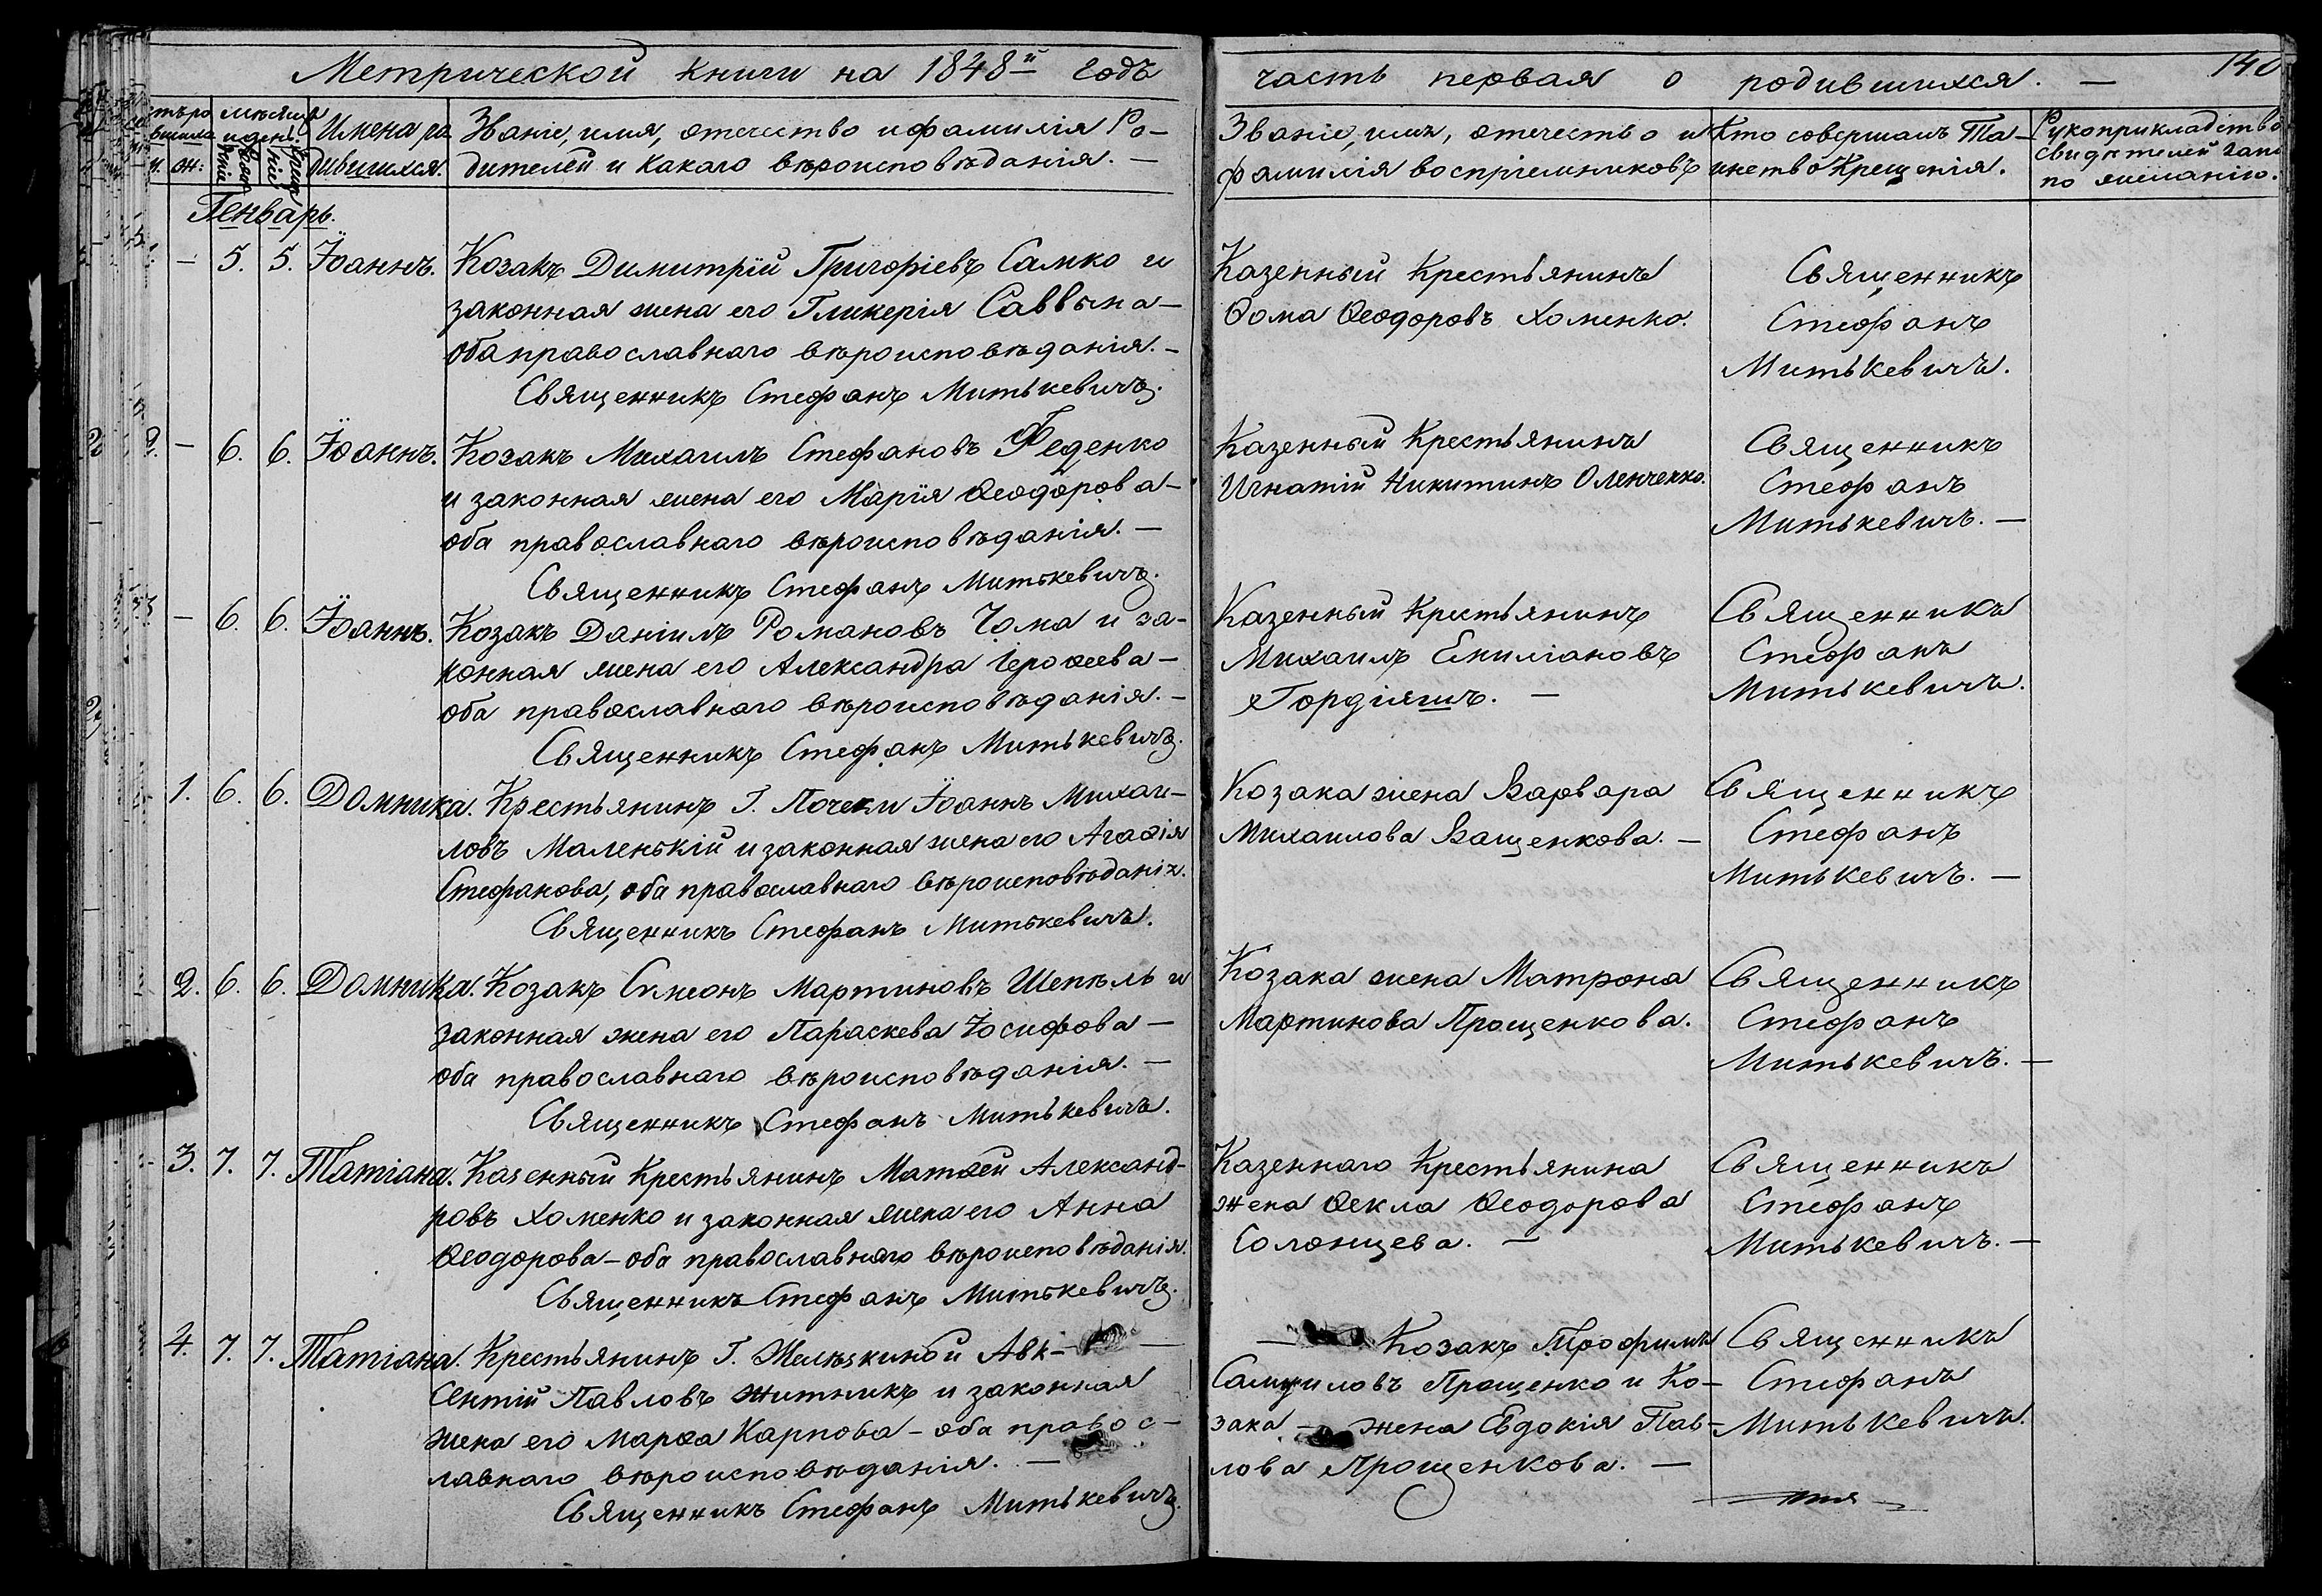 Метрической книги на 1848й годъ
часть первая о родившихся. —
140
Имена ро
дившихся.
Званіе, имя, отечество и фамилія Ро-
дителей и какаго вѣроисповѣданія. —
Званіе, имя, отечество и
фамилія воспріемниковъ
Кто совершалъ Та-
инство крещенія.
Рукоприкладство
свидѣтелей запи
по желанію.
Генварь.
— 5. 5. Іоаннъ.
Козакъ Димитрій Григоріевъ Самко и
законная жена его Гликерія Саввына —
оба православнаго вѣроисповѣданія. —
Священникъ Стефанъ Митькевичъ.
Казенный Крестьянинъ
Ѳома Ѳеодоровъ Хоменко.
Священникъ
Стефанъ
Митькевичъ.
2. — 6. 6. Іоаннъ.
Козакъ Михаилъ Стефановъ Феденко
и законная жена его Марія Ѳеодорова —
оба православнаго вѣроисповѣданія. —
Священникъ Стефанъ Митькевичъ.
Казенный Крестьянинъ
Игнатій Никитинъ Оленченко.
Священникъ
Стефанъ
Митькевичъ. —
3. — 6. 6. Іоаннъ.
Козакъ Даніилъ Романовъ Чома и за-
конная жена его Александра Іероѳеева —
оба православнаго вѣроисповѣданія. —
Священникъ Стефанъ Митькевичъ.
Казенный Крестьянинъ
Михаилъ Емиліановъ
Гордіяшъ. —
Священникъ
Стефанъ
Митькевичъ.
1. 6. 6. Домника.
Крестьянинъ Г. Почеки Іоаннъ Михаи-
ловъ Маленькій и законная жена его Агаѳія
Стефанова, оба православнаго вѣроисповѣданія.
Священникъ Стефанъ Митькевичъ.
Козака жена Варвара
Михаилова Ващенкова. —
Священникъ
Стефанъ
Митькевичъ. —
2. 6. 6. Домника.
Козакъ Симеонъ Мартиновъ Шепѣль и
законная жена его Параскева Іосифова —
оба православнаго вѣроисповѣданія. —
Священникъ Стефанъ Митькевичъ.
Козака жена Матрона
Мартинова Прощенкова.
Священникъ
Стефанъ
Митькевичъ. —
3. 7. 7. Татіана.
Казенный Крестьянинъ Матѳей Александ-
ровъ Хоменко и законная жена его Анна
Ѳеодорова — оба православнаго вѣроисповѣданія.
Священникъ Стефанъ Митькевичъ.
Казеннаго Крестьянина
жена Ѳекла Ѳеодорова
Солонцева. —
Священникъ
Стефанъ
Митькевичъ. —
4. 7. 7. Татіана.
Крестьянинъ Г. Желѣзкиной Авк-
сентій Павловъ Житникъ и законная
жена его Марѳа Карпова — оба правос-
лавнаго вѣроисповѣданія. —
Священникъ Стефанъ Митькевичъ.
— Козакъ Трофимъ
Самуиловъ Прощенко и Ко-
зака — жена Евдокія Пав-
лова Прощенкова. —
Священникъ
Стефанъ
Митькевичъ.